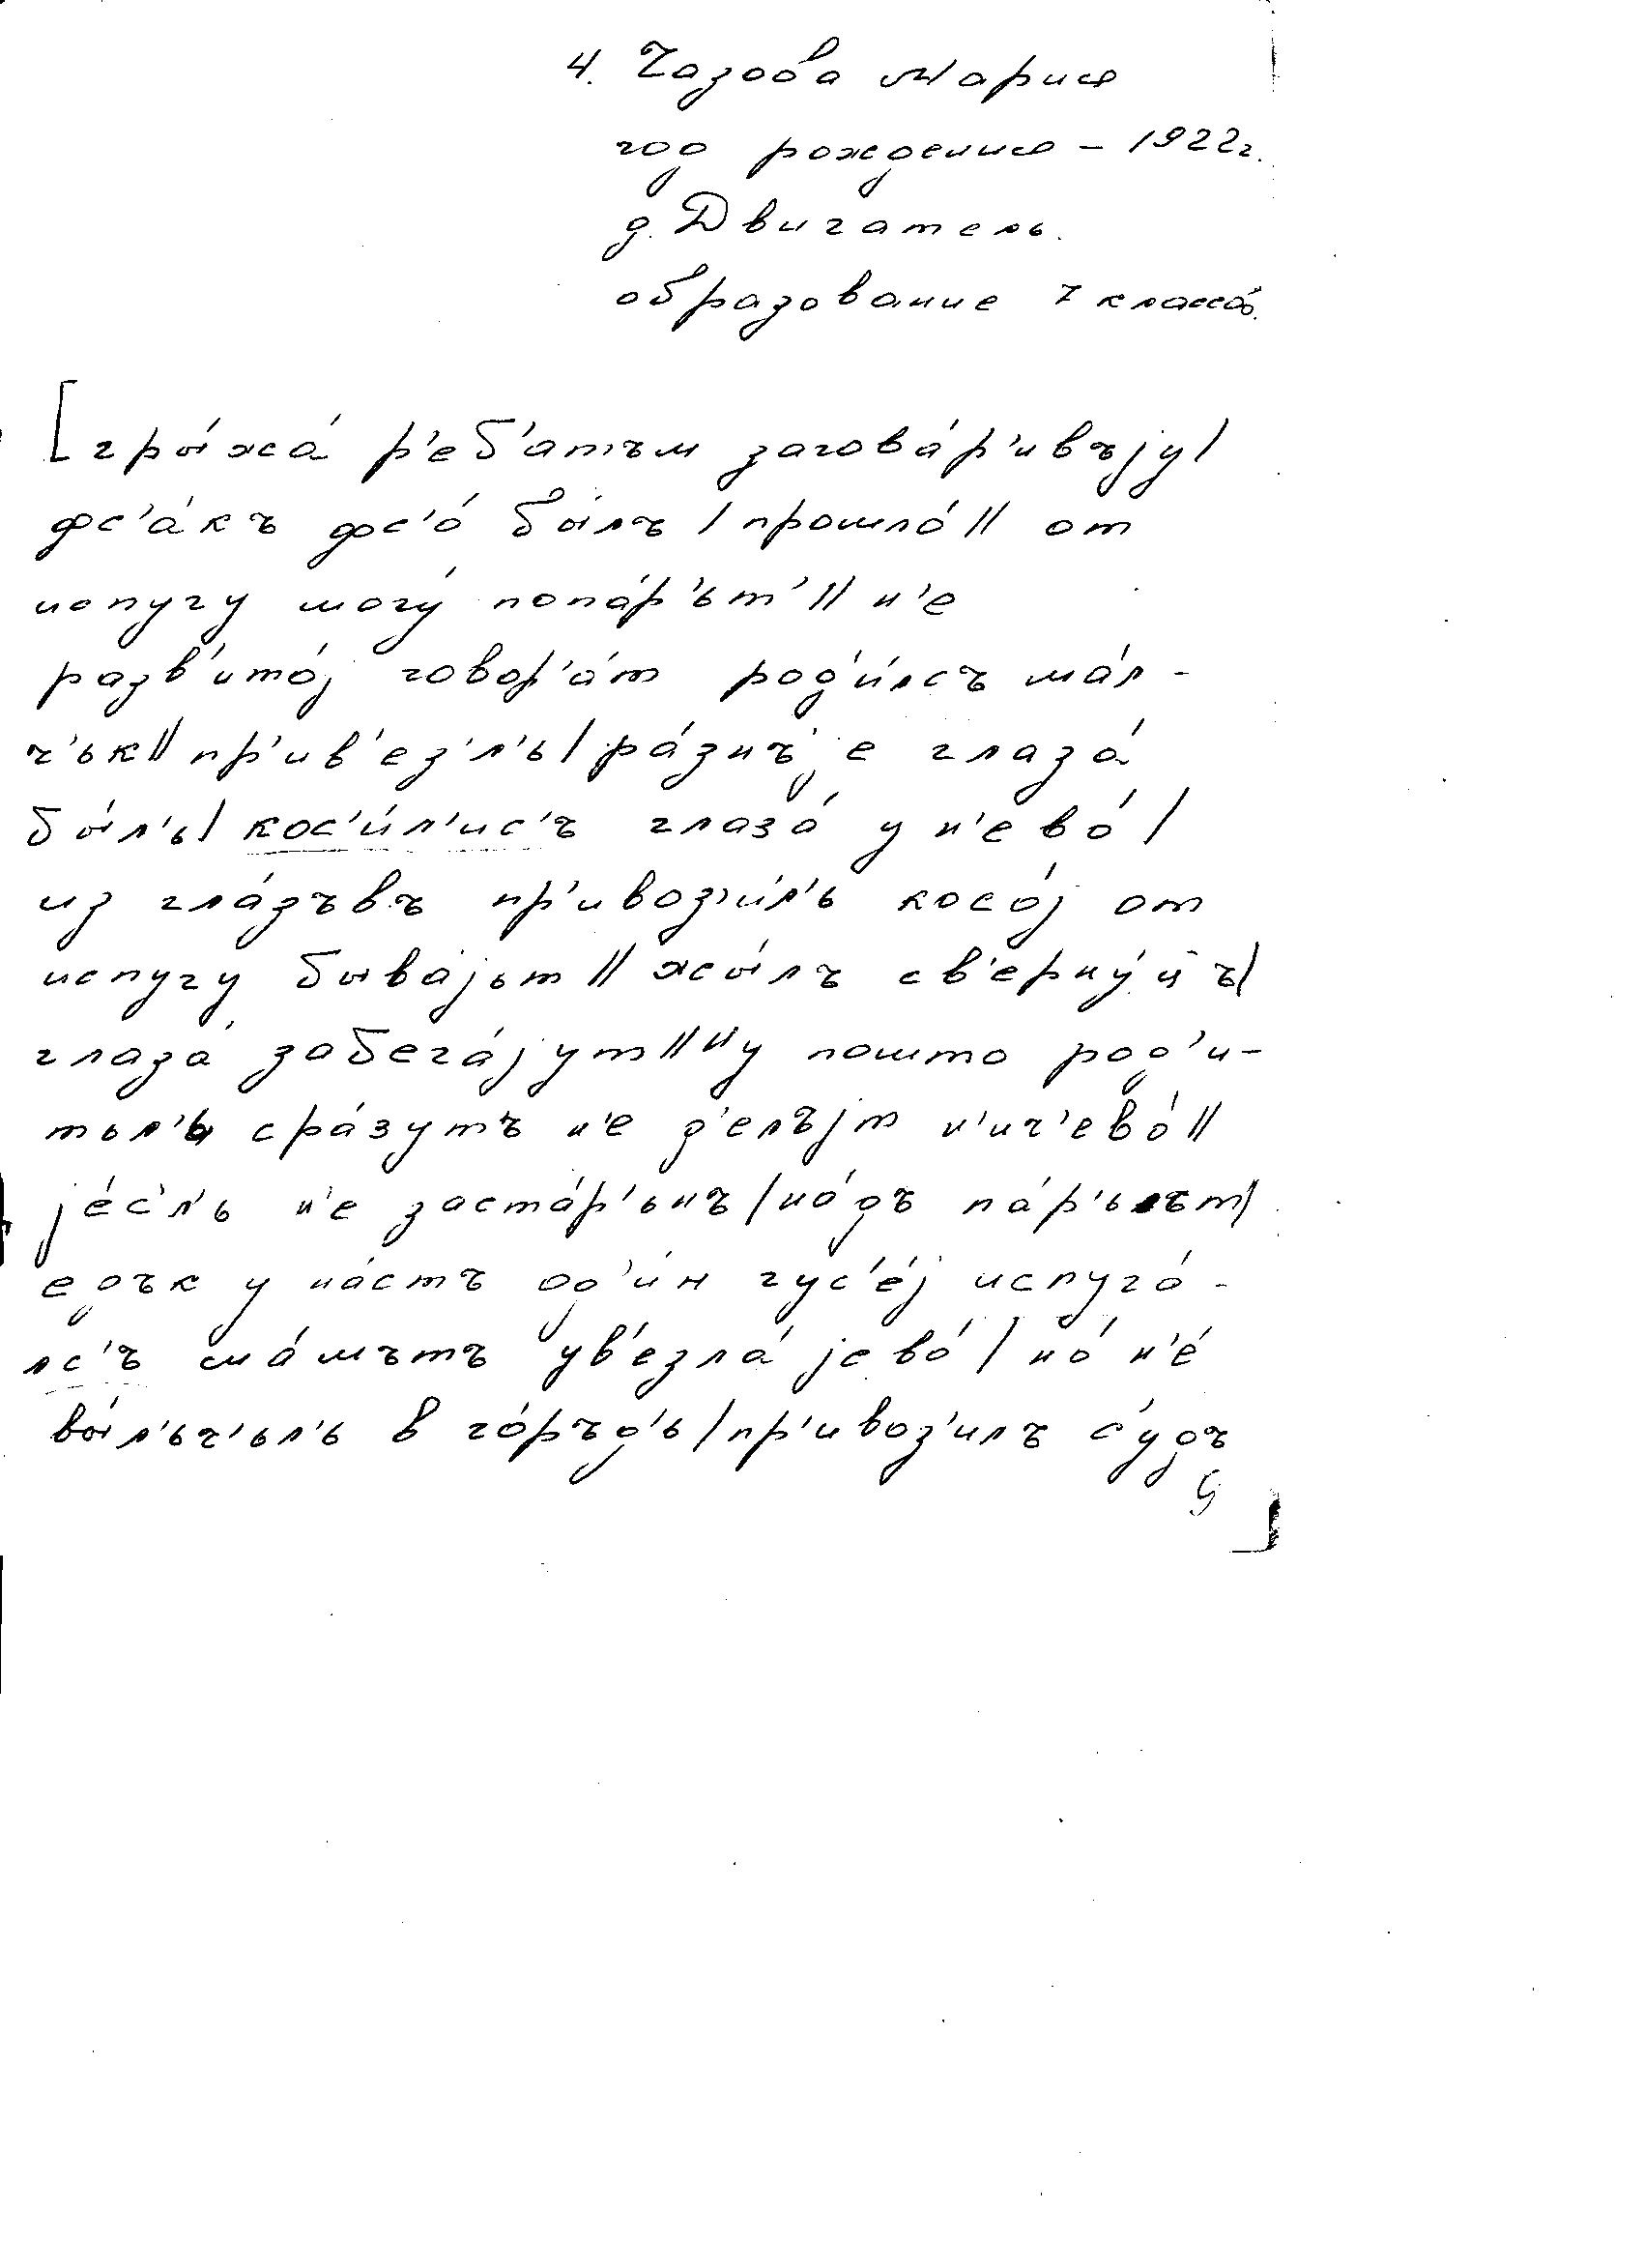 4. Чазова Мария
год рождения – 1922г.
д. Двигатель.
образование 7 классов.
[гры́жа́ р'еб'атъм загова́р'ивъjу/
фс'а́къ фс'о́ бы́лъ / прошло́ // от
испугу могу́ попа́р'ьт' // н'е
разв'ито́j говор'а́т род'и́лсъ ма́л-
ч'ьк // пр'ив'ез'л'ь / ра́знъjе глаза́
бы́л'ь / кос'и́л'ис'ъ глаза́ у н'ево́ /
из гла́зъвъ пр'ивоз'и́л'ь косо́j от
испугу быва́jьт // жы́лъ св'ерну́ц ъ/
глаза́ забега́jут // ну пошто род'и-
тьл'ь сра́зутъ н'е д'елъjт н'ич'ево́ //
jе́с'л'ь н'е заста́р'ьнъ / на́дъ па́р'ьът/
едък у на́стъ од'и́н гус'е́j испуга́-
лс'ъ ма́мътъ ув'езла́ jево́ / но́ н'е́
вы́л'ьч'ьл'ь в го́ръд'ь / пр'ивоз'илъ с'у́дъ
]